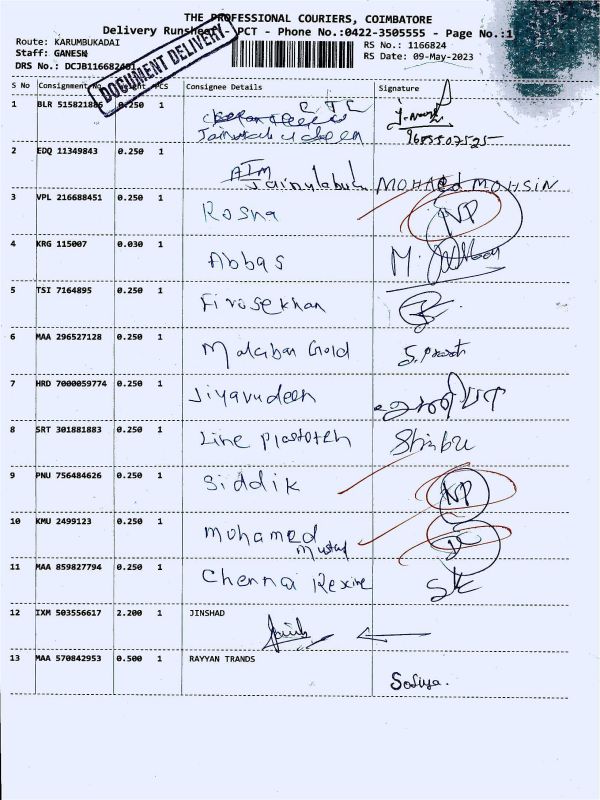 THE PROFESSIONAL COURIERS, COIMBATORE
Delivery Runsheet - PCT - Phone No.:0422-3505555 - Page No.:1
Route: KARUMBUKADAI
RS No.: 1166824
Staff: GANESH
RS Date: 09-May-2023
DRS No.: DCJB116682401
DOCUMENT DELIVERY
S No Consignment No PCS Consignee Details Signature
1 BLR 515821886 0.250 1 CTC
9685507525
2 EDQ 11349843 0.250 1 ATM Jainulabudeen MOHAMED MOHSIN
3 VPL 216688451 0.250 1 Rosna NP
4 KRG 115007 0.030 1 Abbas M.
5 TSI 7164895 0.250 1 Firosekhan
6 MAA 296527128 0.250 1 Malaban Gold
7 HRD 7000059774 0.250 1 Jiyavudeen
8 SRT 301881883 0.250 1 Line Shinbu
9 PNU 756484626 0.250 1 Siddik NP
10 KMU 2499123 0.250 1 Mohamed
11 MAA 859827794 0.250 1 Chennai Rexine SK
12 IXM 503556617 2.200 1 JINSHAD
13 MAA 570842953 0.500 1 RAYYAN TRANDS
Sofiya.